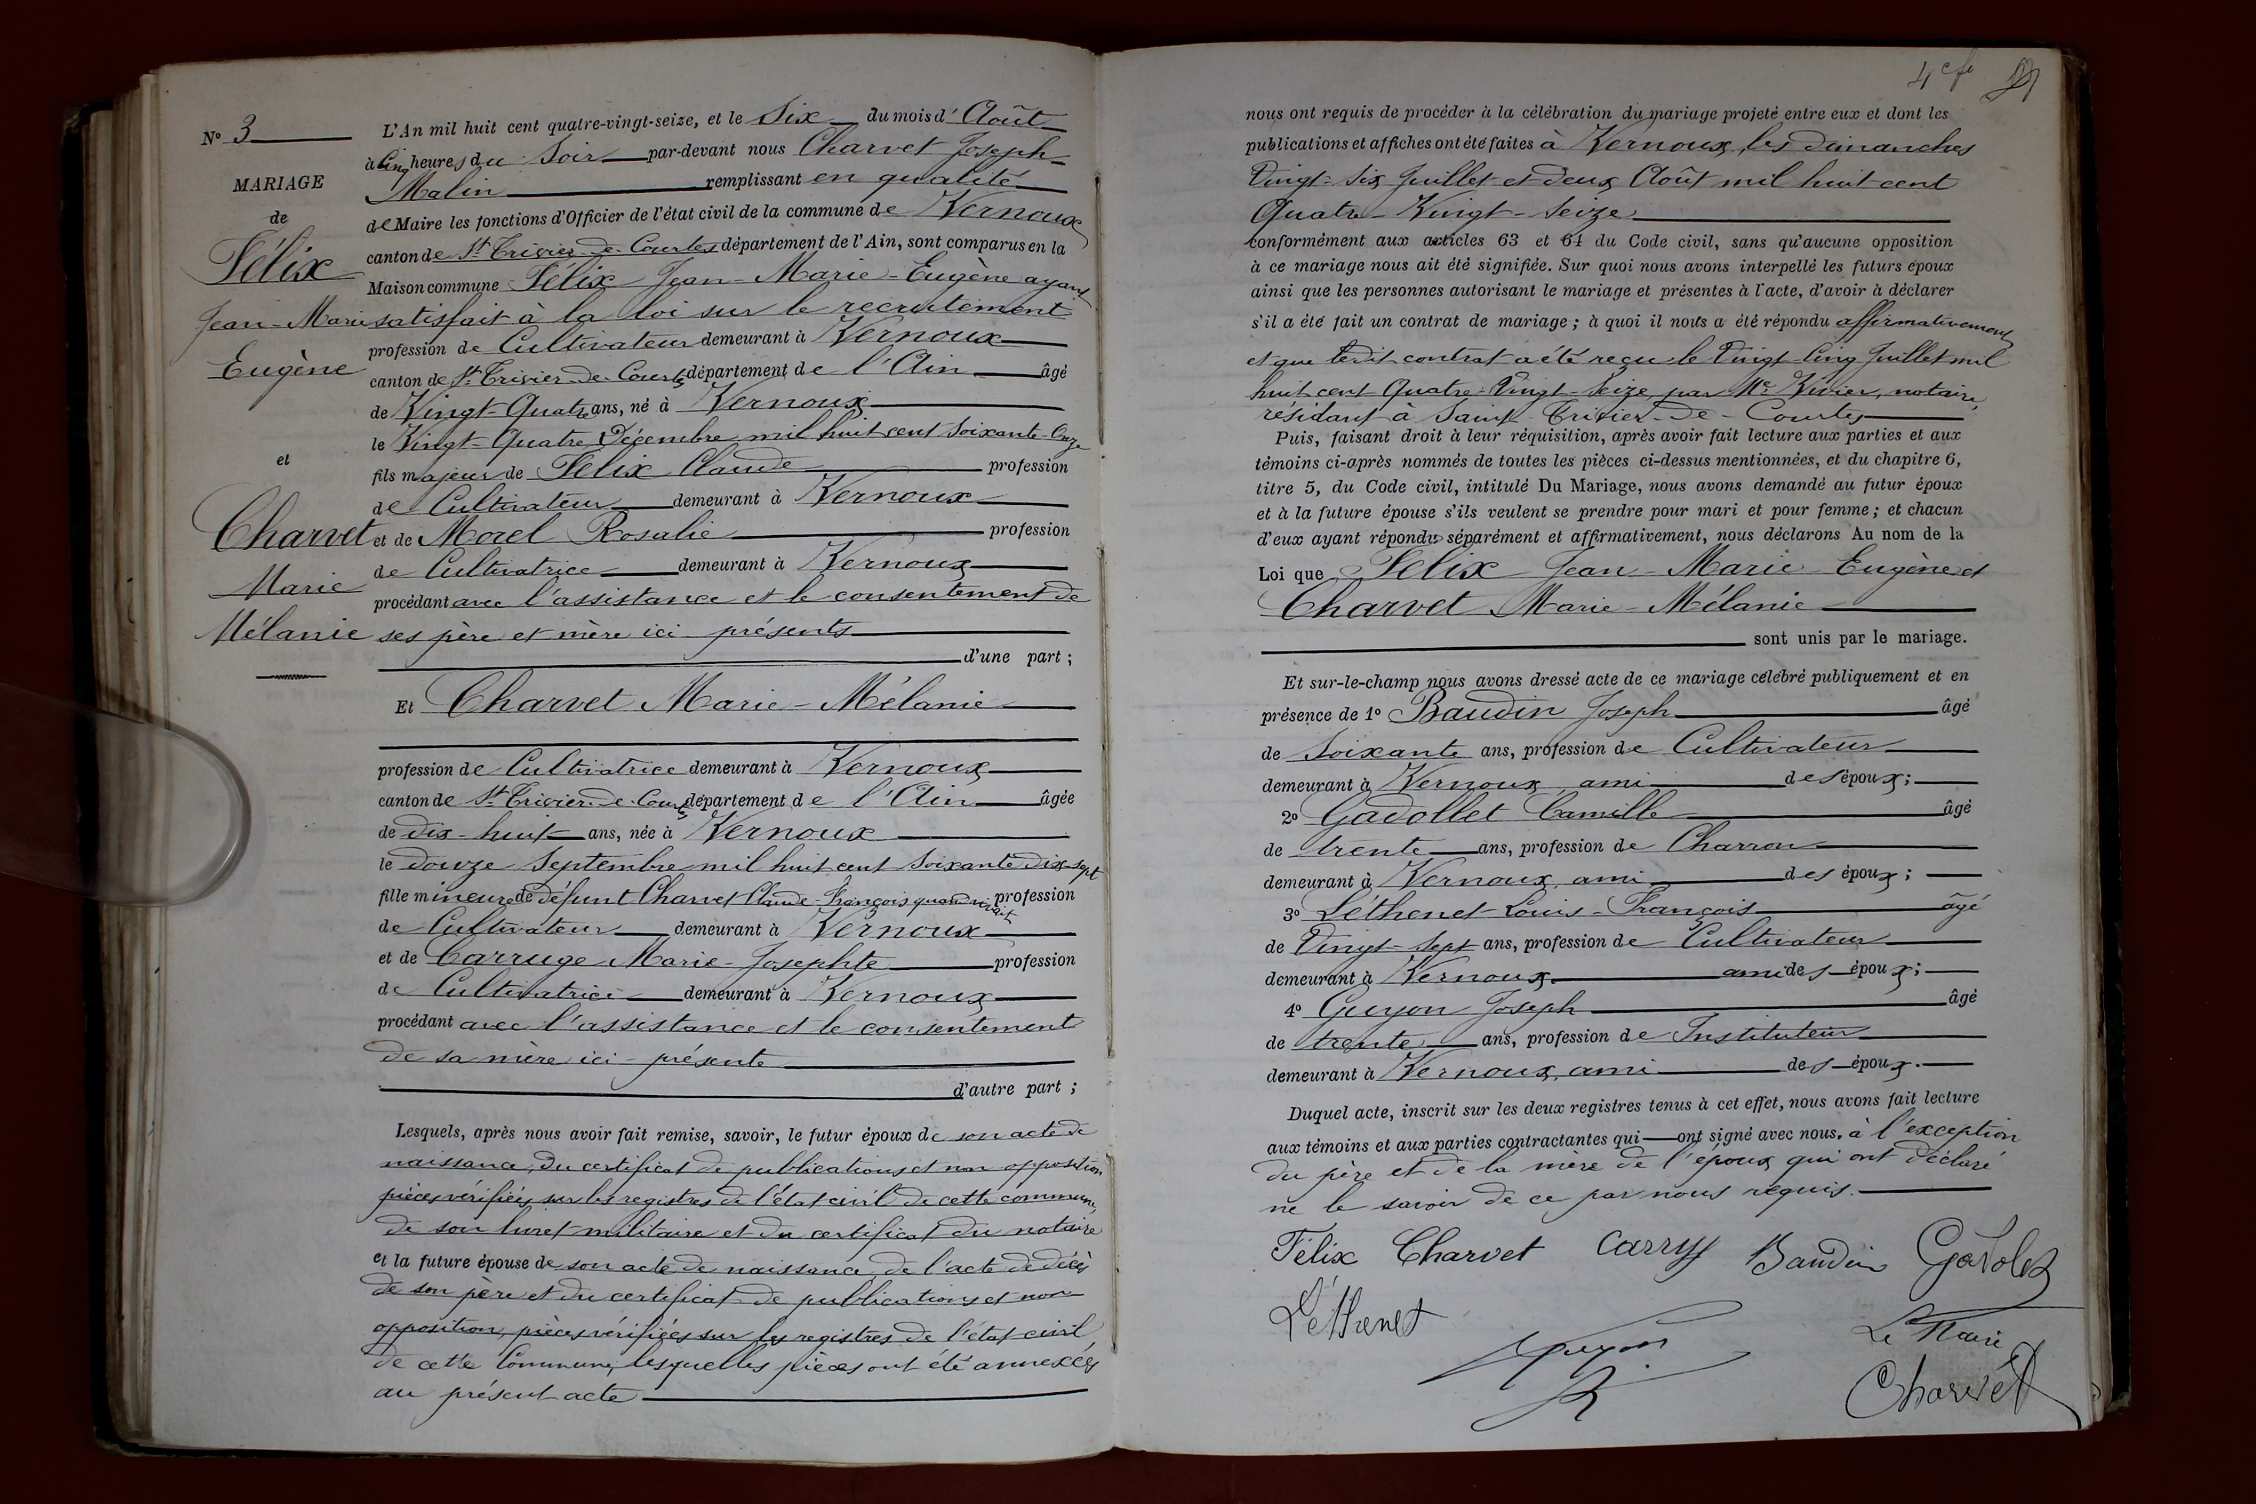 N° 3
MARIAGE
de
Félix
Jean-Marie
Eugène
et
Charvet
Marie
Mélanie
L'An mil huit cent quatre-vingt-seize, et le Six du mois d'Août
à Cinq heures du Soir par-devant nous Charvet Joseph
Malin remplissant en qualité
de Maire les fonctions d'Officier de l'état civil de la commune de Vernoux
canton de St Trivier-de-Courtes département de l'Ain, sont comparus en la
Maison commune Félix Jean-Marie-Eugène ayant
satisfait à la loi sur le recrutement
profession de Cultivateur demeurant à Vernoux
canton de St Trivier-de-Courtes département de l'Ain âgé
de Vingt-Quatre ans, né à Vernoux
le Vingt-Quatre Décembre mil huit cent soixante-Onze
fils majeur de Félix Claude profession
de Cultivateur demeurant à Vernoux
et de Morel Rosalie profession
de Cultivatrice demeurant à Vernoux
procédant avec l'assistance et le consentement de
ses père et mère ici présents
d'une part ;
Et Charvet Marie-Mélanie
profession de Cultivatrice demeurant à Vernoux
canton de St Trivier-de-Courtes département de l'Ain âgée
de dix-huit ans, née à Vernoux
le douze Septembre mil huit cent soixante dix-sept
fille mineure de défunt Charvet Claude-François quand vivait profession
de Cultivateur demeurant à Vernoux
et de Carruge Marie-Josephte profession
de Cultivatrice demeurant à Vernoux
procédant avec l'assistance et le consentement
de sa mère ici présente
d'autre part ;
Lesquels, après nous avoir fait remise, savoir, le futur époux de son acte de
naissance, du certificat de publications et non opposition
pièces vérifiées sur les registres de l'état civil de cette commune,
de son livret militaire et du certificat du notaire
et la future épouse de son acte de naissance, de l'acte de décès
de son père et du certificat de publications et non
opposition, pièces vérifiées sur les registres de l'état civil
de cette Commune, lesquelles pièces ont été annexées
au présent acte
4e fe
nous ont requis de procéder à la célébration du mariage projeté entre eux et dont les
publications et affiches ont été faites à Vernoux, les dimanches
Vingt-Six Juillet et deux Août mil huit cent
Quatre-Vingt-Seize
conformément aux articles 63 et 64 du Code civil, sans qu'aucune opposition
à ce mariage nous ait été signifiée. Sur quoi nous avons interpellé les futurs époux
ainsi que les personnes autorisant le mariage et présentes à l'acte, d'avoir à déclarer
s'il a été fait un contrat de mariage ; à quoi il nous a été répondu affirmativement
et que ledit contrat a été reçu le Vingt-Cinq Juillet mil
huit cent Quatre-Vingt-Seize par Me Vivier, notaire,
résidant à Saint-Trivier-de-Courtes
Puis, faisant droit à leur réquisition, après avoir fait lecture aux parties et aux
témoins ci-après nommés de toutes les pièces ci-dessus mentionnées, et du chapitre 6,
titre 5, du Code civil, intitulé Du Mariage, nous avons demandé au futur époux
et à la future épouse s'ils veulent se prendre pour mari et pour femme ; et chacun
d'eux ayant répondu séparément et affirmativement, nous déclarons Au nom de la
Loi que Félix Jean-Marie Eugène et
Charvet Marie-Mélanie
sont unis par le mariage.
Et sur-le-champ nous avons dressé acte de ce mariage célébré publiquement et en
présence de 1° Baudin Joseph âgé
de Soixante ans, profession de Cultivateur
demeurant à Vernoux, ami des époux ;
2° Gadollet Camille âgé
de trente ans, profession de Charron
demeurant à Vernoux, ami des époux ;
3° Léthenet Louis-François âgé
de Vingt-Sept ans, profession de Cultivateur
demeurant à Vernoux ami des époux ;
4° Guyon Joseph âgé
de trente ans, profession de Instituteur
demeurant à Vernoux, ami des époux.
Duquel acte, inscrit sur les deux registres tenus à cet effet, nous avons fait lecture
aux témoins et aux parties contractantes qui ont signé avec nous. à l'exception
du père et de la mère de l'époux qui ont déclaré
ne le savoir de ce par nous requis.
Félix Charvet Baudin Gadolet
Léthenet
Guyon
Le Maire
Charvet